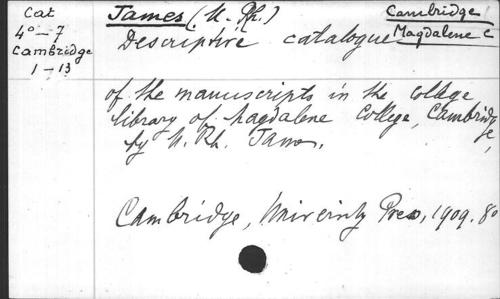 Cat
4º-7
Cambridge
1-13
James (M. Rh.)
Cambridge
Magdalene C
Descriptive catalogue
of the manuscripts in the college
library of Magdalene College, Cambridge,
by M. Rh. James.
Cambridge, University Press, 1909. 8º